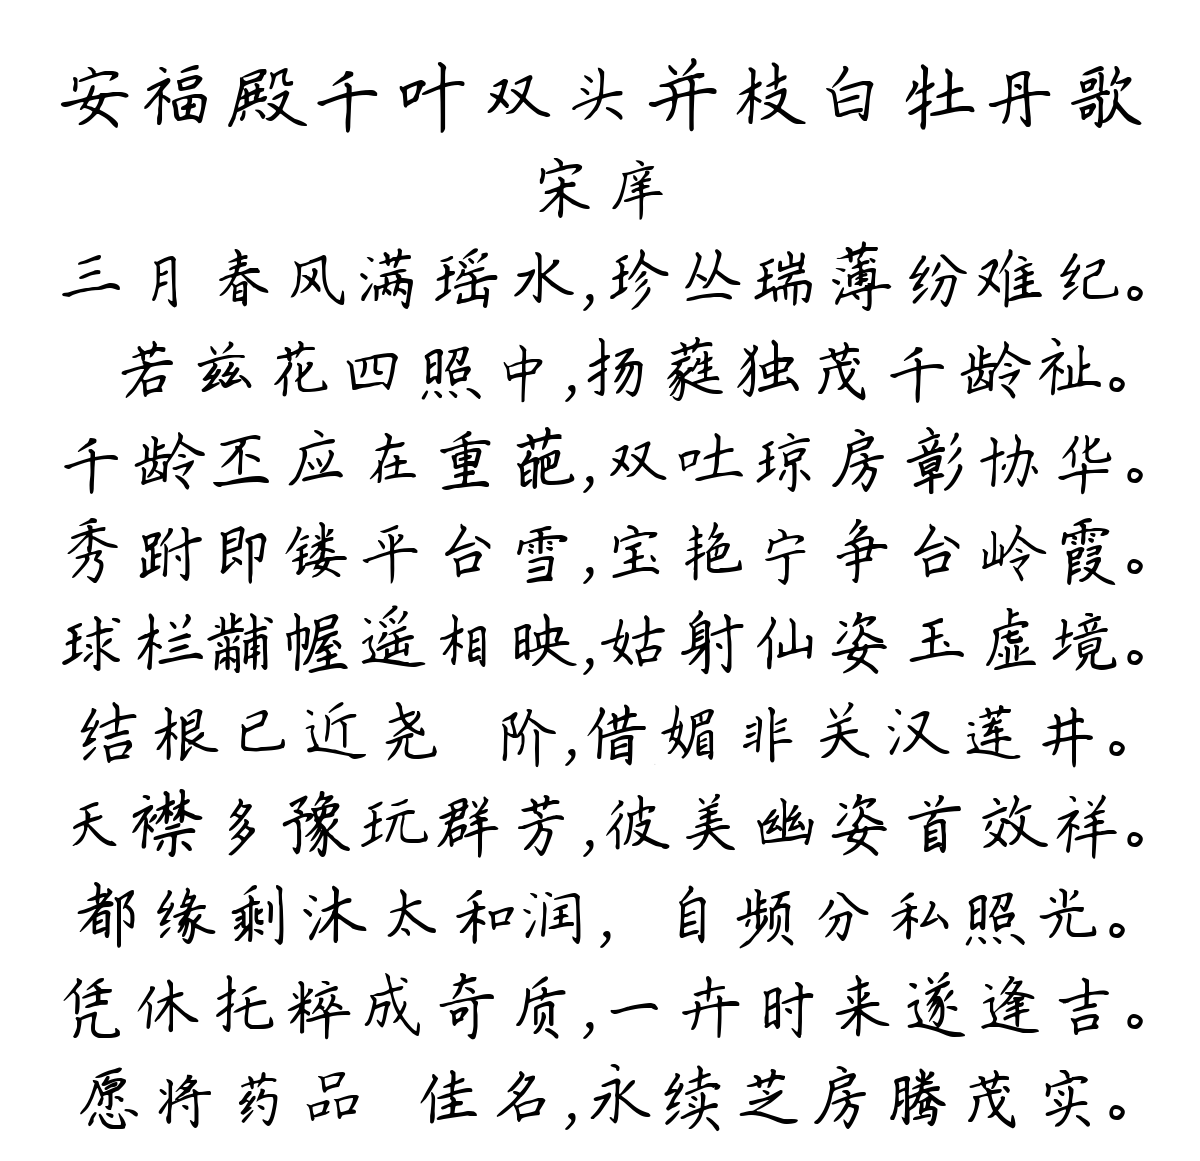 安福殿千叶双头并枝白牡丹歌
宋庠
三月春风满瑶水,珍丛瑞薄纷难纪。
若兹花四照中,扬蕤独茂千龄祉。
千龄丕应在重葩,双吐琼房彰协华。
秀跗即镂平台雪,宝艳宁争台岭霞。
球栏黼幄遥相映,姑射仙姿玉虚境。
结根已近尧 阶,借媚非关汉莲井。
天襟多豫玩群芳,彼美幽姿首效祥。
都缘剩沐太和润, 自频分私照光。
凭休托粹成奇质,一卉时来遂逢吉。
愿将药品 佳名,永续芝房腾茂实。